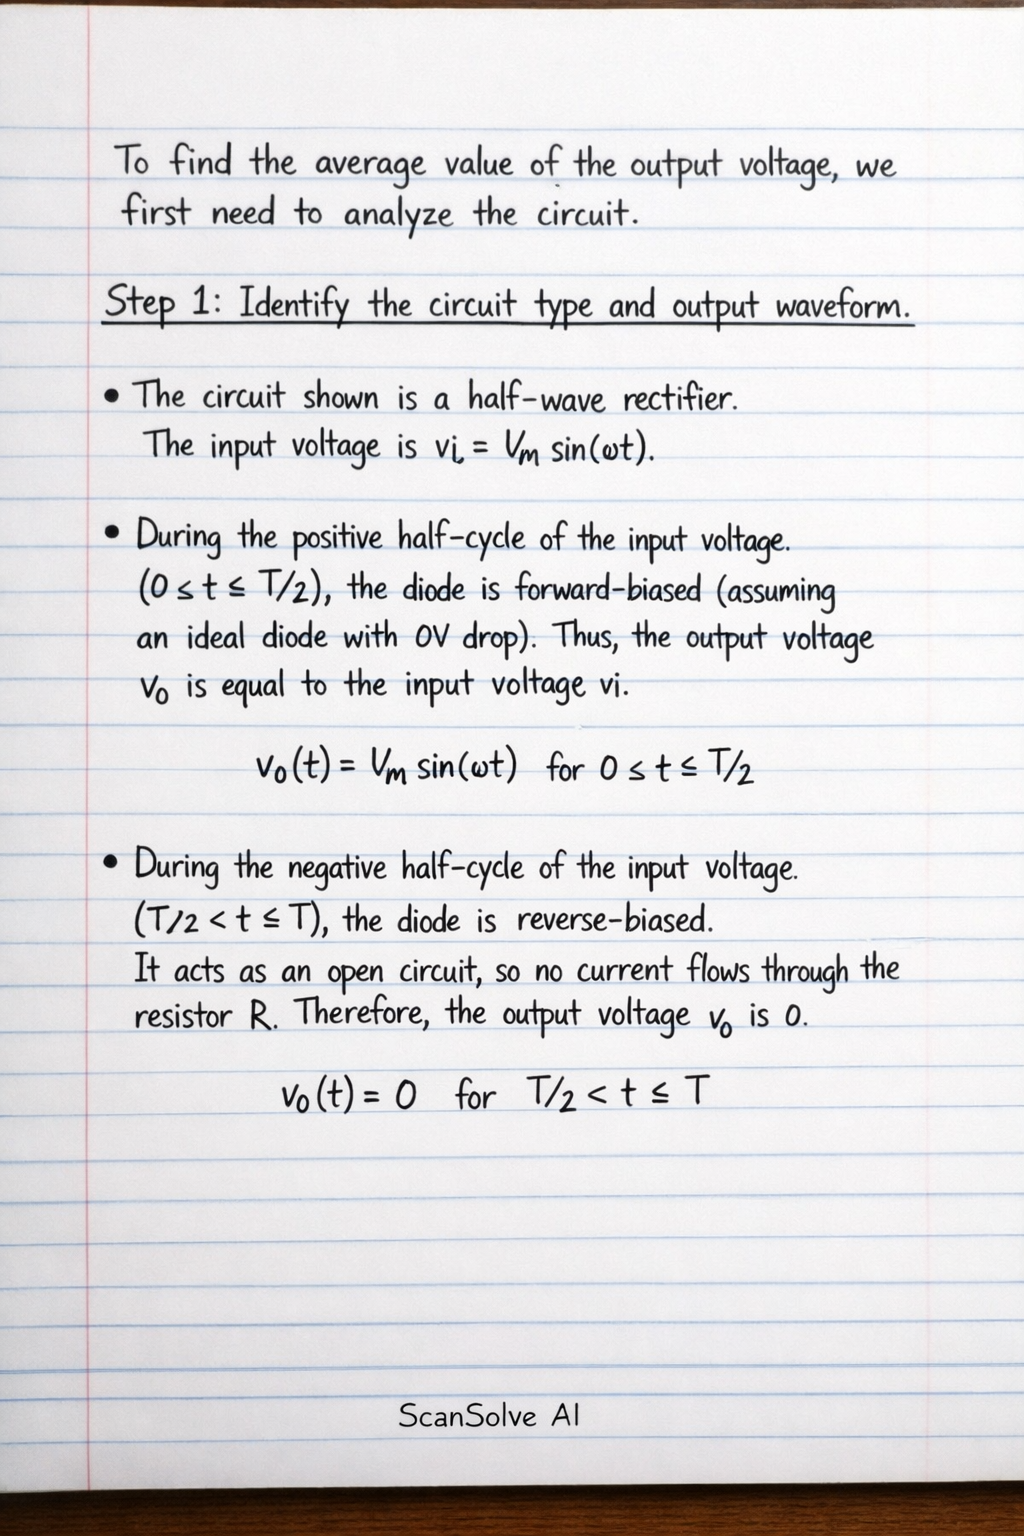 To find the average value of the output voltage, we
first need to analyze the circuit.
Step 1: Identify the circuit type and output waveform.
• The circuit shown is a half-wave rectifier.
The input voltage is vi = Vm sin(ωt).
• During the positive half-cycle of the input voltage.
(0 ≤ t ≤ T/2), the diode is forward-biased (assuming
an ideal diode with 0V drop). Thus, the output voltage
vo is equal to the input voltage vi.
vo(t) = Vm sin(ωt) for 0 ≤ t ≤ T/2
• During the negative half-cycle of the input voltage.
(T/2 < t ≤ T), the diode is reverse-biased.
It acts as an open circuit, so no current flows through the
resistor R. Therefore, the output voltage vo is 0.
vo(t) = 0 for T/2 < t ≤ T
ScanSolve AI